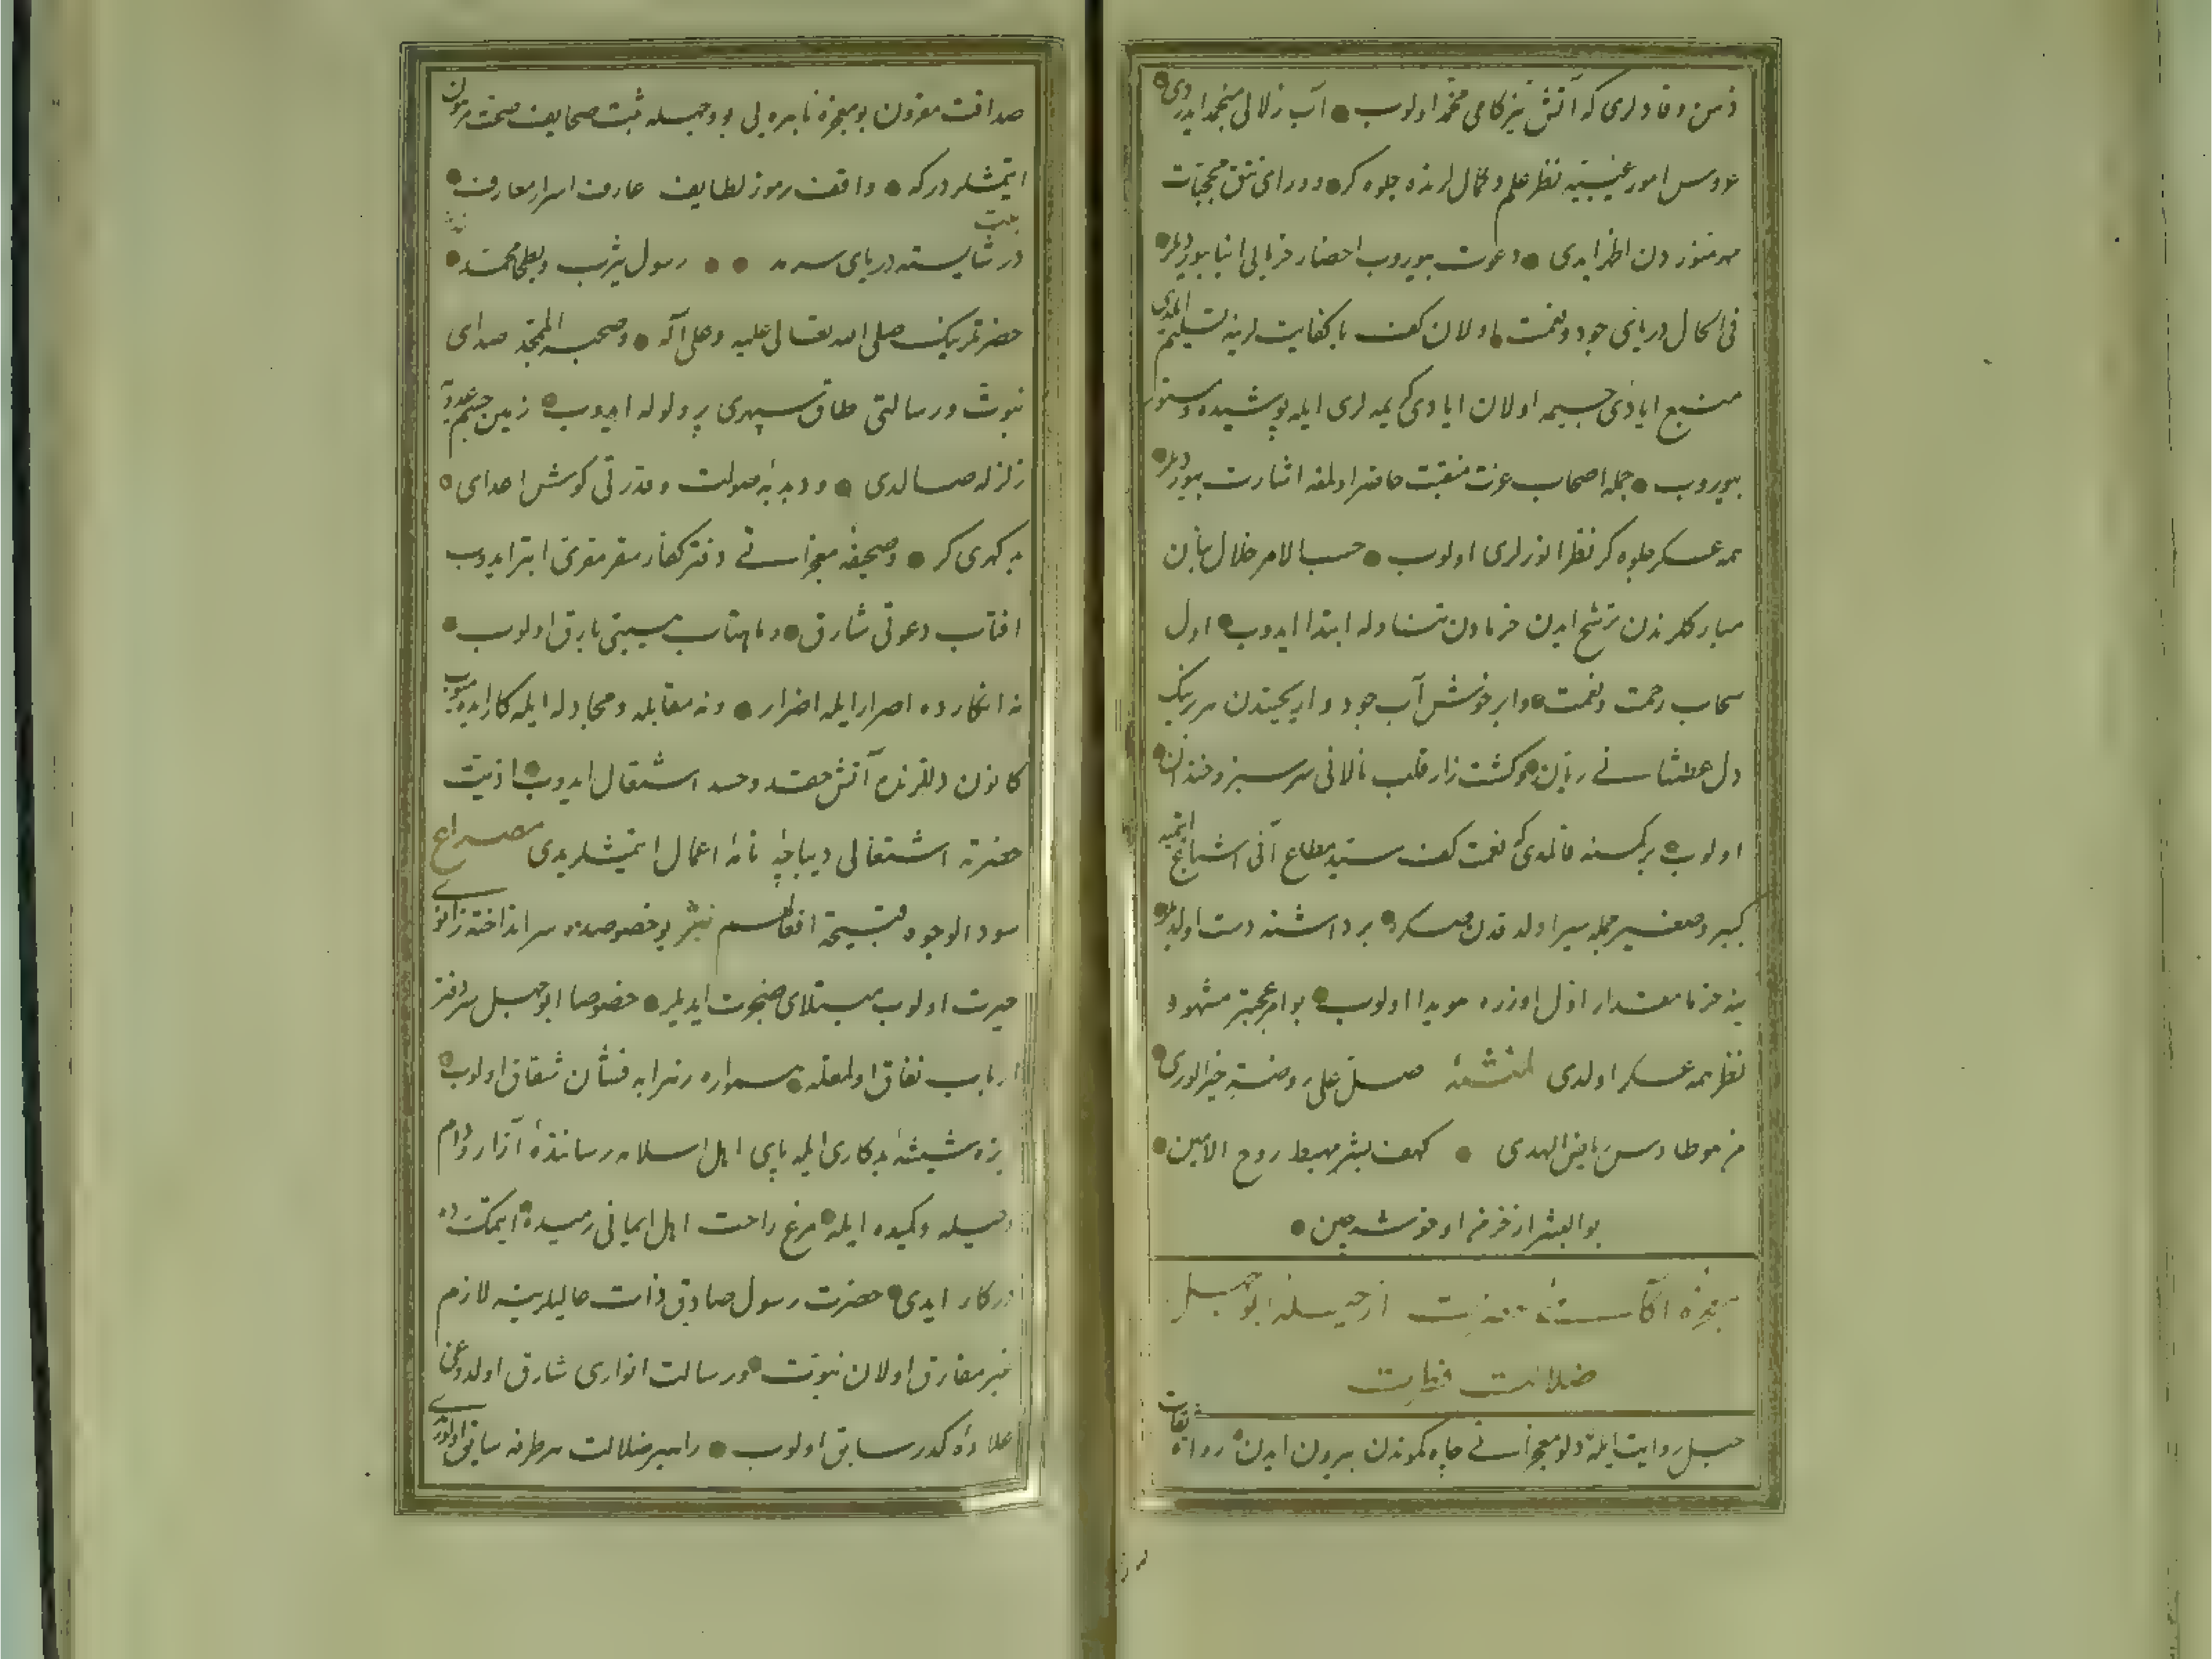 ذهن وقادلری که آتش تیزکامی مخمد اولوب آب زلالی منجمد ایدردی
عروس امور غیبیه نظر علم وکمال لرنده جلوه کر وورای تتق محجبات
مهر منور دن اظهر ایدی دعوت بیوروب احضار خرمالی انبا بیوردیلر
فی الحال دریای جود ونعمت اولان کف با کفایت لرینه تسلیم ایلدی
منبع ایادی جسیمه اولان ایادی کریمه لری ایله پوشیده ومستور
بیوروب جمله اصحاب عزت منقبت حاضر اولمغه اشارت بیوردیلر
همه عسکر جلوه کر نظر انورلری اولوب حسب الامر خلال بنان
مبارکلرندن ترشح ایدن خرمادن تناوله ابتدا ایدوب اول
سحاب رحمت ونعمت وابر خوشش آب جود دن هر برینک
دل عطشانی ریان وکشت زار قلب نالانی سرسبز وخندان
اولوب بر کمسنه قالمدی که نعمت کف سید مطاع آنی اشباع ایتمیه
کبیر وصغیر جمله سیر اولدقدن صکره برداشته دست اولدیلر
ینه خرما مقدار اول اوزره هویدا اولوب بو امر عجیب مشهود
نظر همه عسکر اولدی لمنشئه صل علی روضة خیر الوری
من هو طاوس ریاض الهدی کهف بشر مهبط روح الامین
بوالبشر از خرمن او خوشه چین
معجزه آکاه شدن حضرت از حیله ابو جهل
ضلالت غایت
حبل روایت ایله دلو معجزاتی چاه کموندن بیرون ایدن رواة ثقات
صداقت مقرون بو معجزه باهره یی بو وجهله ثبت صحایف صحت مرهون
ایتمشلردر که واقف رموز لطایف عارف اسرار معارف
بیت
در شایسته دریای سرمد رسول یثرب وبطحا محمد
حضرتلرینک صلی الله تعالی علیه وعلی آله وصحبه الممجد صدای
نبوت ورسالتی طاق سپهری پر ولوله ایدوب زمین جسم عدویه
زلزله صالدی ودبدبه صولت وقدرتی کوش اعدای
بد کهری کر وصحیفه معجزاتی دفتر کفار سقر مقری ابتر ایدوب
افتاب دعوتی شارق وماهتاب هیبتی بارق اولوب
نه انکارده اصرار ایله اضرار ونه مقابله ومجادله ایله کار ایده میوب
کانون دللرنده آتش حقد وحسد اشتعال ایدوب اذیت
حضرته اشتغالی دیباچه نامه اعمال ایتمشلریدی مصراع
سود الوجوه قبیحة افعالهم نیشر بو خصوصده سر انداخته زانوی
حیرت اولوب مبتلای ضجرت ایدیلر خصوصا ابو جهل سر دفتر
ارباب نفاق اولمغله همواره زهرابه فشان شقاق اولوب
بزه شیشه بدکاری ایله پای اهل اسلامه رساننده آزار ودام
حیله وکیده ایله مرغ راحت اهل ایمانی رمیده ایتمکده
درکار ایدی حضرت رسول صادق ذات عالیلرینه لازم
غیر مفارق اولان نبوت ورسالت انواری شارق اولدوغی
علاوه کدر سابق اولوب راهبر ضلالت هر طرفه سائق اولوردی